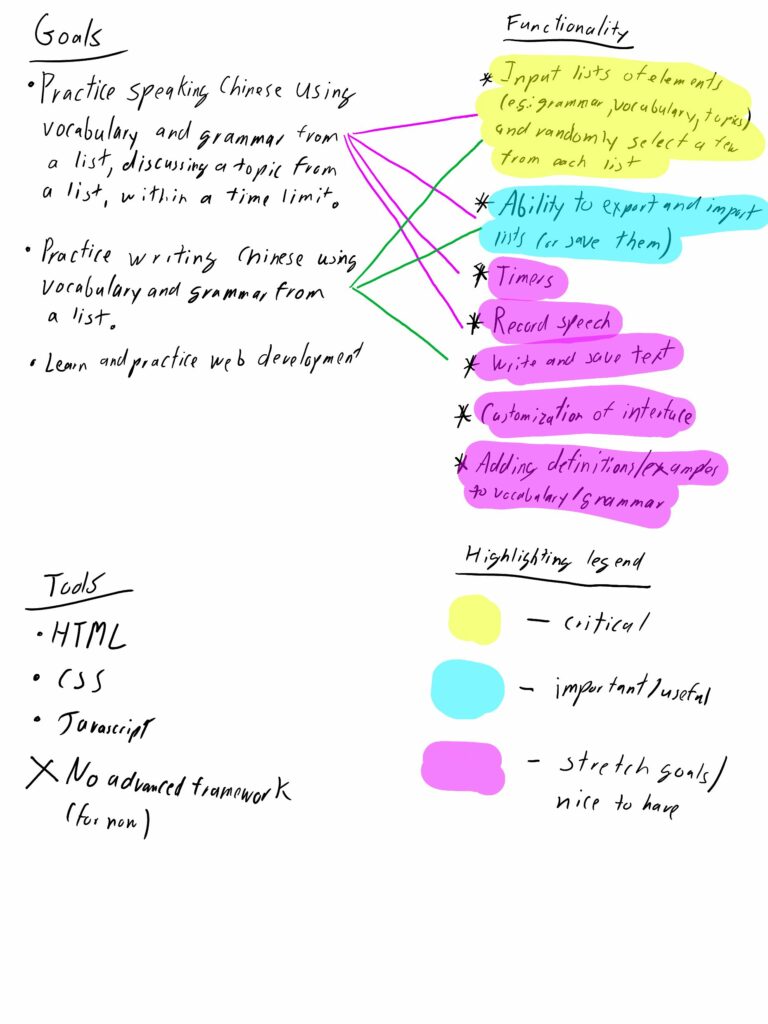 Goals
• Practice speaking Chinese using
vocabulary and grammar from
a list, discussing a topic from
a list, within a time limit.
• Practice writing Chinese using
vocabulary and grammar from
a list.
• Learn and practice web development
Functionality
* Input lists of elements
(e.g.: grammar, vocabulary, topics)
and randomly select a few
from each list
* Ability to export and import
lists (or save them)
* Timers
* Record speech
* Write and save text
* Customization of interface
* Adding definitions/examples
to vocabulary/grammar
Tools
• HTML
• CSS
• Javascript
X No advanced framework
(for now)
Highlighting legend
– critical
– important/useful
– stretch goals/
nice to have